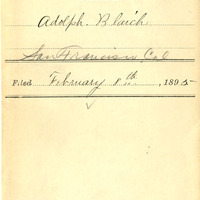 Adolph. Blaich
San Francisco Cal
Filed February 8th, 1895